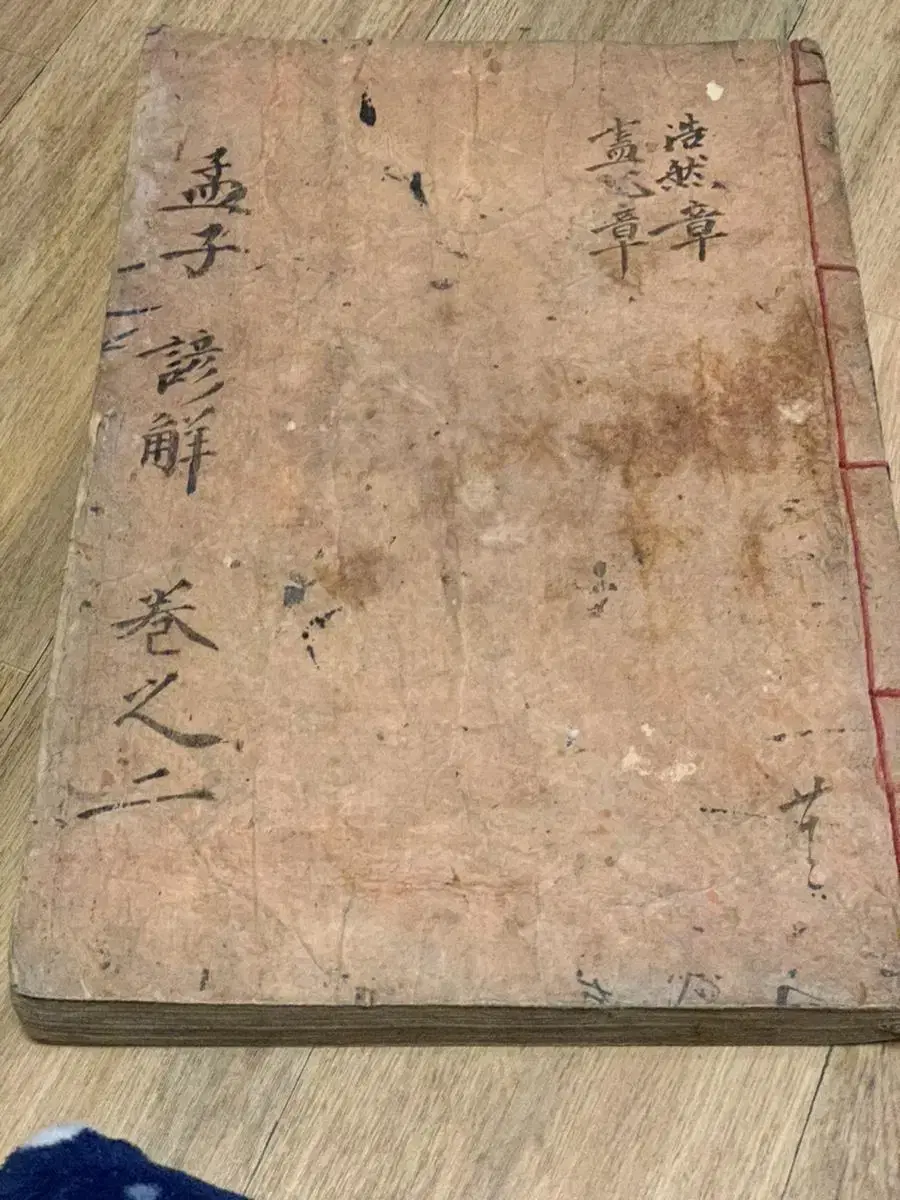 浩然章
盡心章
孟子 諺解 卷之二